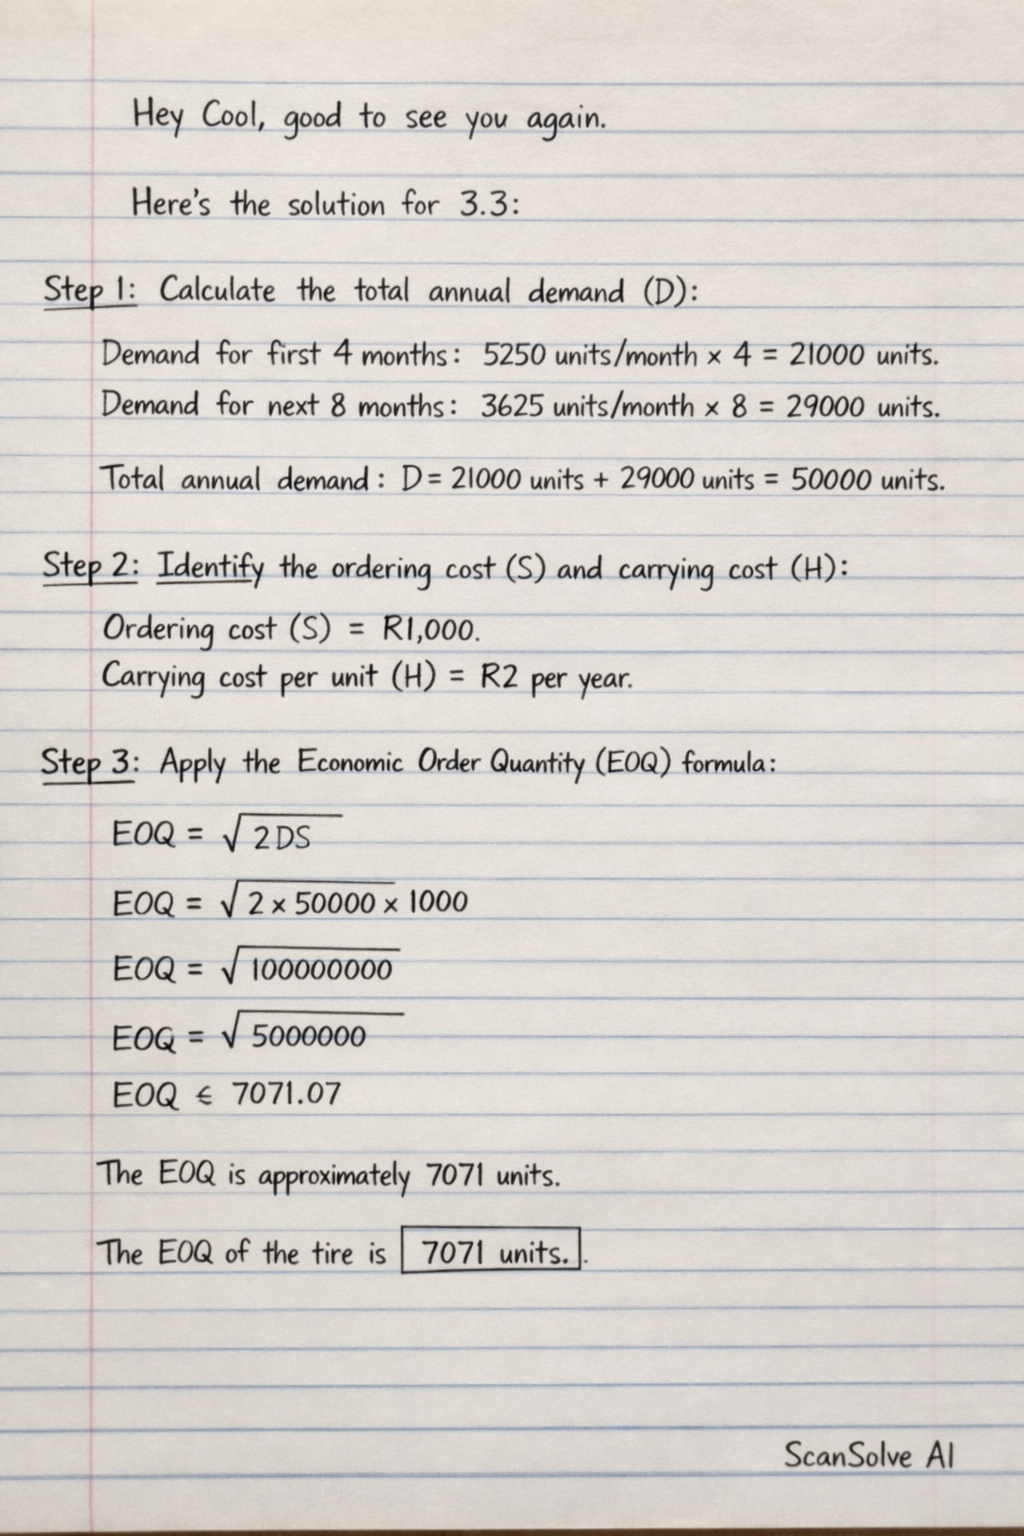 Hey Cool, good to see you again.
Here's the solution for 3.3:
Step 1: Calculate the total annual demand (D):
Demand for first 4 months: 5250 units/month × 4 = 21000 units.
Demand for next 8 months: 3625 units/month × 8 = 29000 units.
Total annual demand: D = 21000 units + 29000 units = 50000 units.
Step 2: Identify the ordering cost (S) and carrying cost (H):
Ordering cost (S) = R1,000.
Carrying cost per unit (H) = R2 per year.
Step 3: Apply the Economic Order Quantity (EOQ) formula:
EOQ = √2DS
EOQ = √2 × 50000 × 1000
EOQ = √100000000
EOQ = √5000000
EOQ € 7071.07
The EOQ is approximately 7071 units.
The EOQ of the tire is 7071 units..
ScanSolve AI